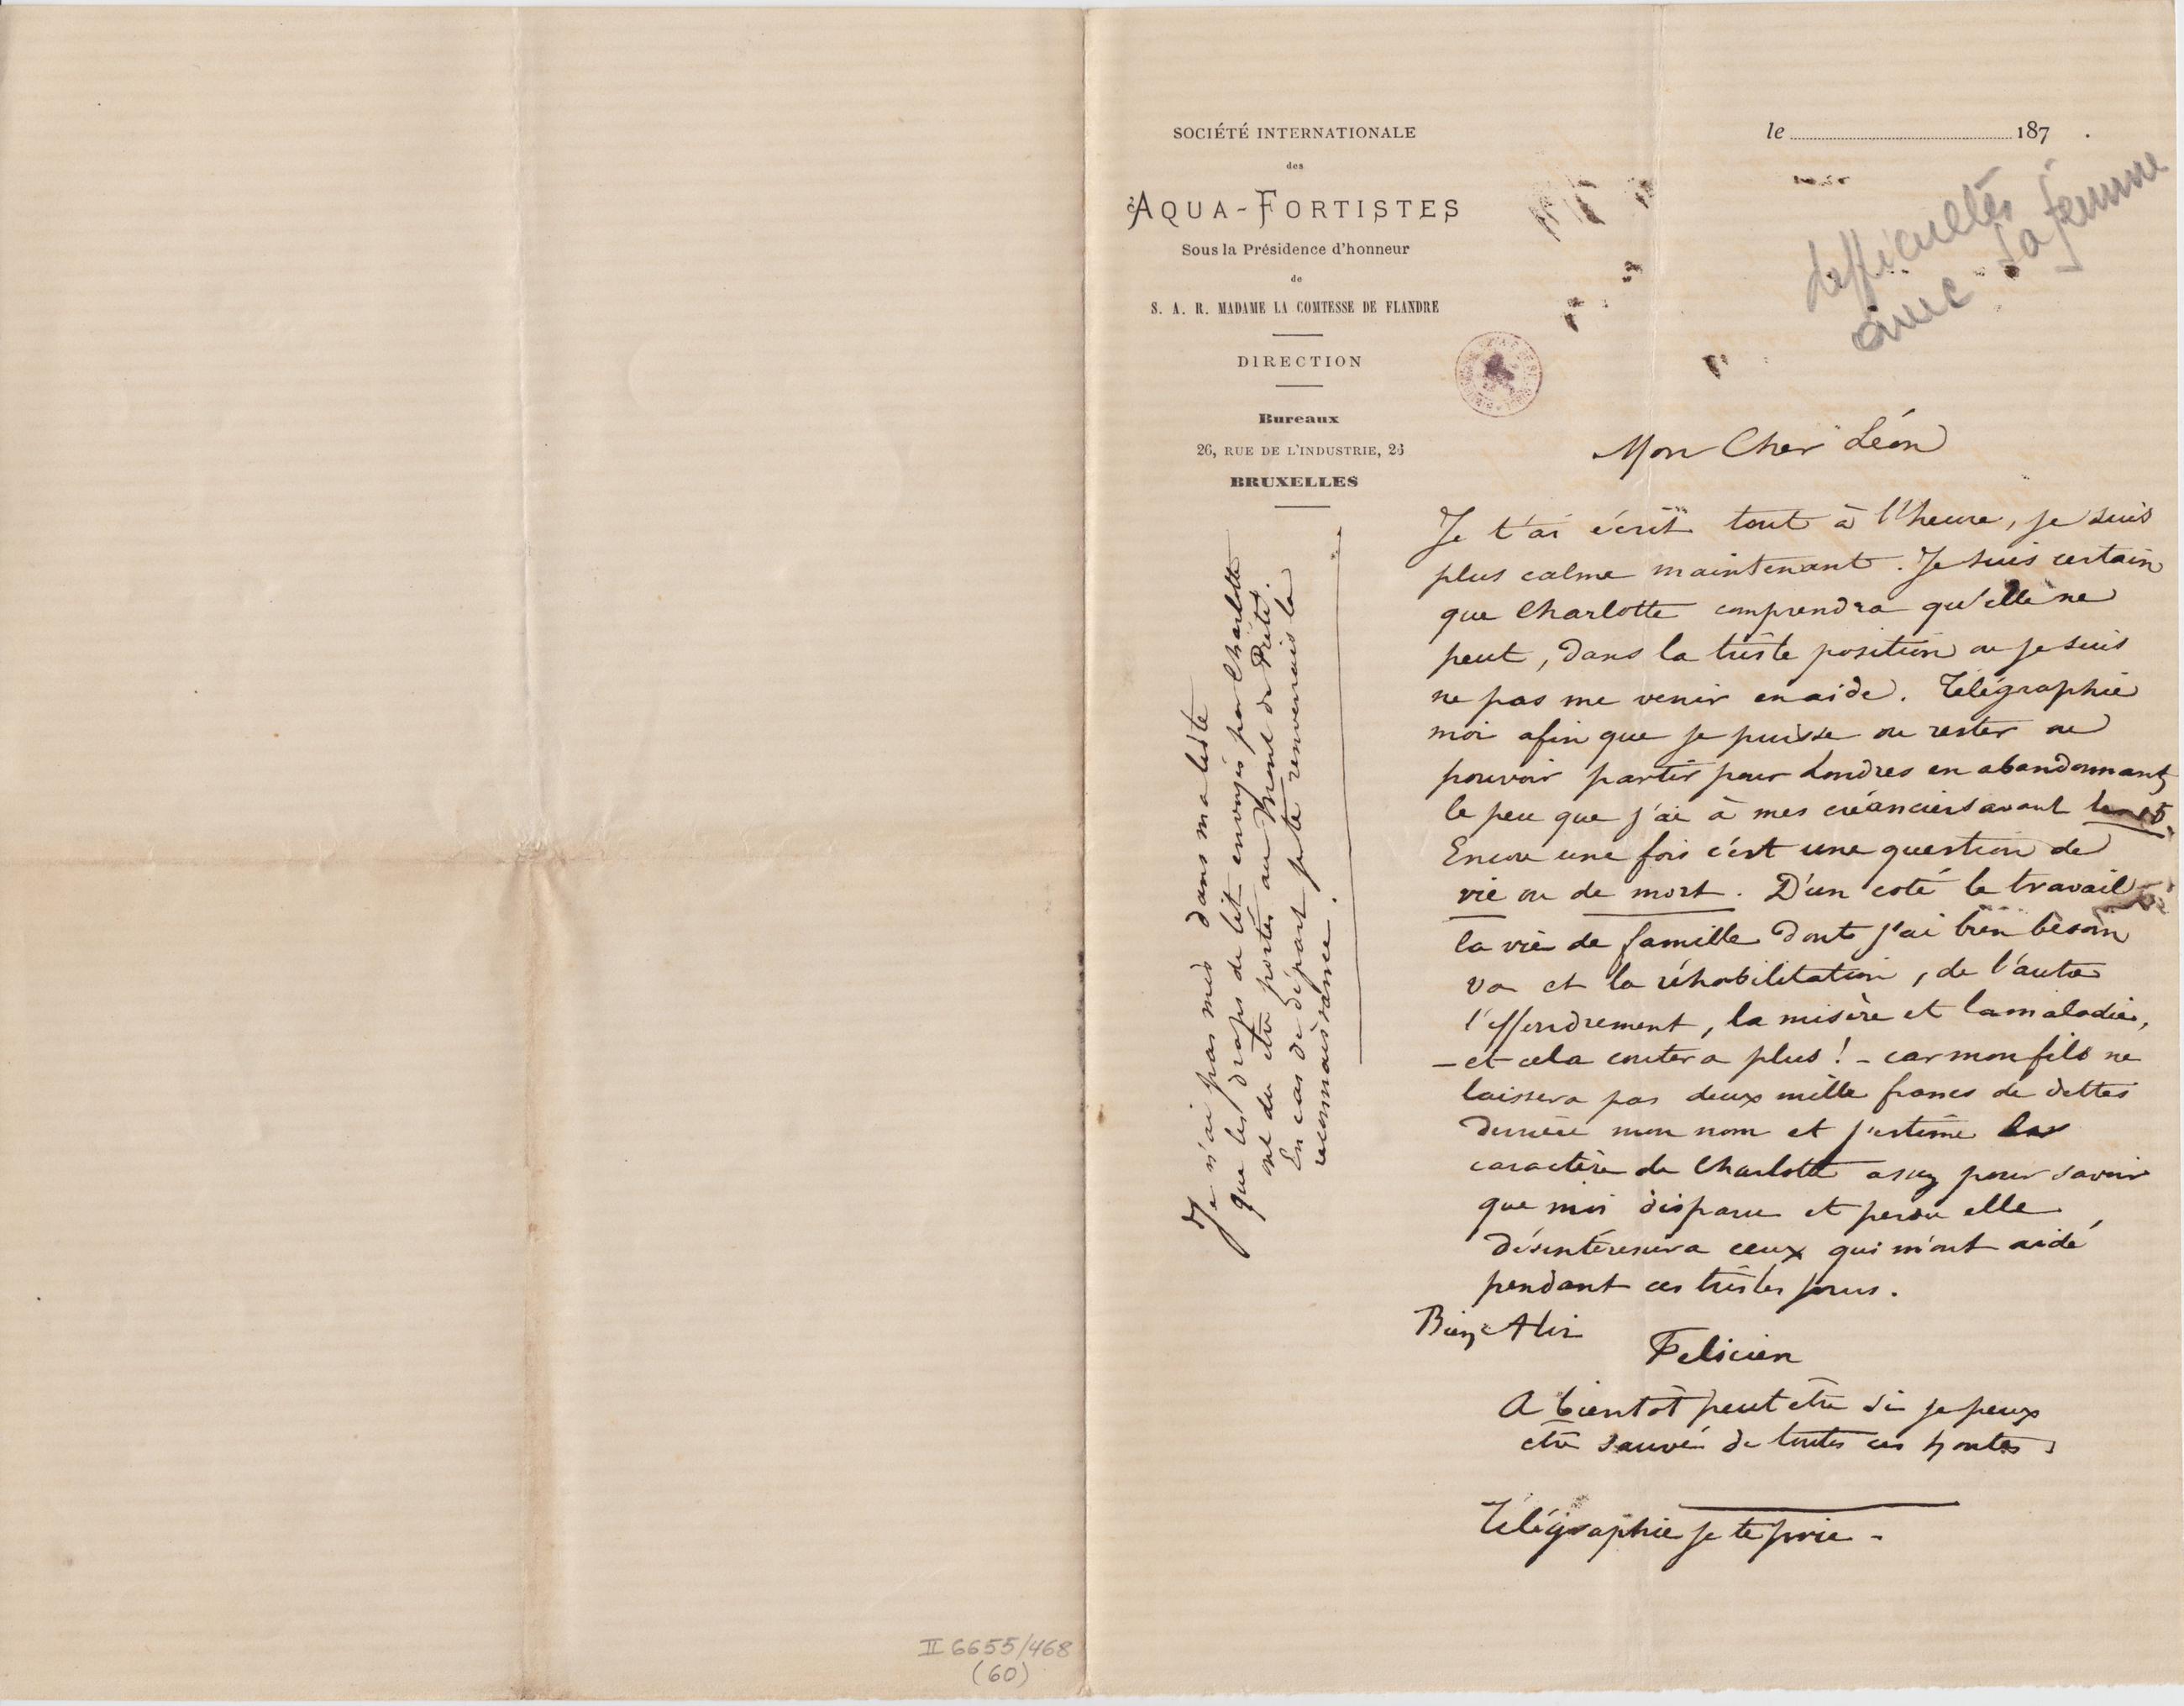 SOCIÉTÉ INTERNATIONALE
des
AQUA-FORTISTES
Sous la Présidence d'honneur
de
S. A. R. MADAME LA COMTESSE DE FLANDRE
DIRECTION
Bureaux
26, RUE DE L'INDUSTRIE, 26
BRUXELLES
le 187 .
difficultés
avec sa femme
Mon Cher Léon
Je t'ai écrit tout à l'heure, je suis
plus calme maintenant. Je suis certain
que Charlotte comprendra qu'elle ne
peut, dans la triste position ou je suis
ne pas me venir en aide. Télégraphie
moi afin que je puisse ou rester ou
pouvoir partir pour Londres en abandonnant
le peu que j'ai à mes créanciers avant le 15.
Encore une fois c'est une question de
vie ou de mort. D'un coté le travail
la vie de famille dont j'ai bien besoin
va et la réhabilitation, de l'autre
l'effondrement, la misère et la maladie,
– et cela coutera plus! – car mon fils ne
laissera pas deux mille francs de dettes
derrière mon nom et j'estime
caractère de Charlotte assez pour savoir
que moi disparu et perdu elle
désintéressera ceux qui m'ont aidé
pendant ces tristes jours.
Bien à toi
Felicien
A bientôt peut etre si je peux
etre sauvé de toutes ces hontes
Télégraphie je te prie –
Je n'ai pas mis dans ma liste
que les draps de lit envoyés par Charlotte
ont du etre portés au Mont de Piété.
En cas de départ je te renverrais la
reconnaissance.
II 6655/468
(60)